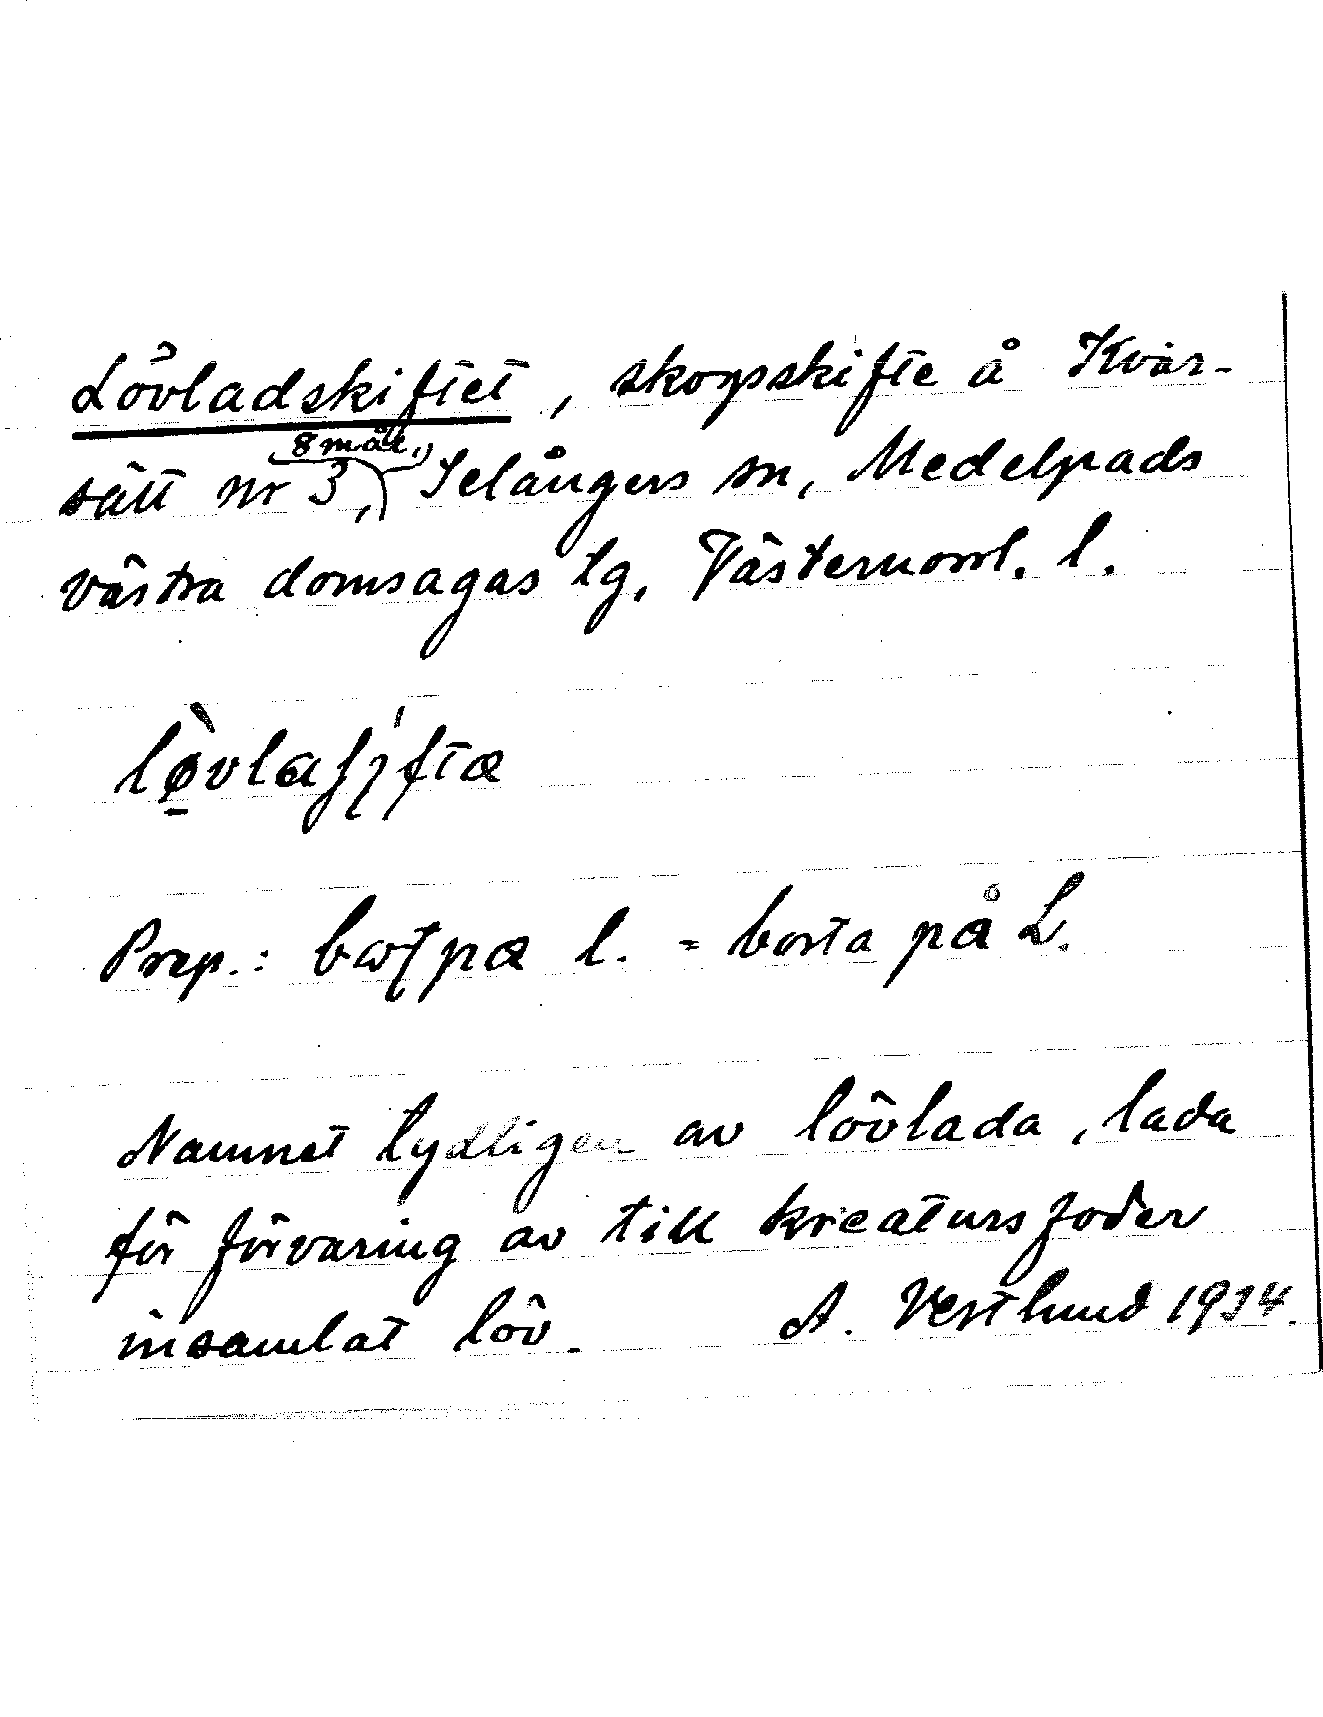 Lövladskiftet, skogsskifte å Kvar-
sätt nr 3, (8 mål,) Selångers sn, Medelpads
västra domsagas tg, Västernorrl. l.
lø̠̀vlaʃı̍ftæ
Prep.: l. = borta på L.
Namnet tydligen av lövlada, lada
för förvaring av till kreatursfoder
insamlat löv. A. Vestlund 1934.